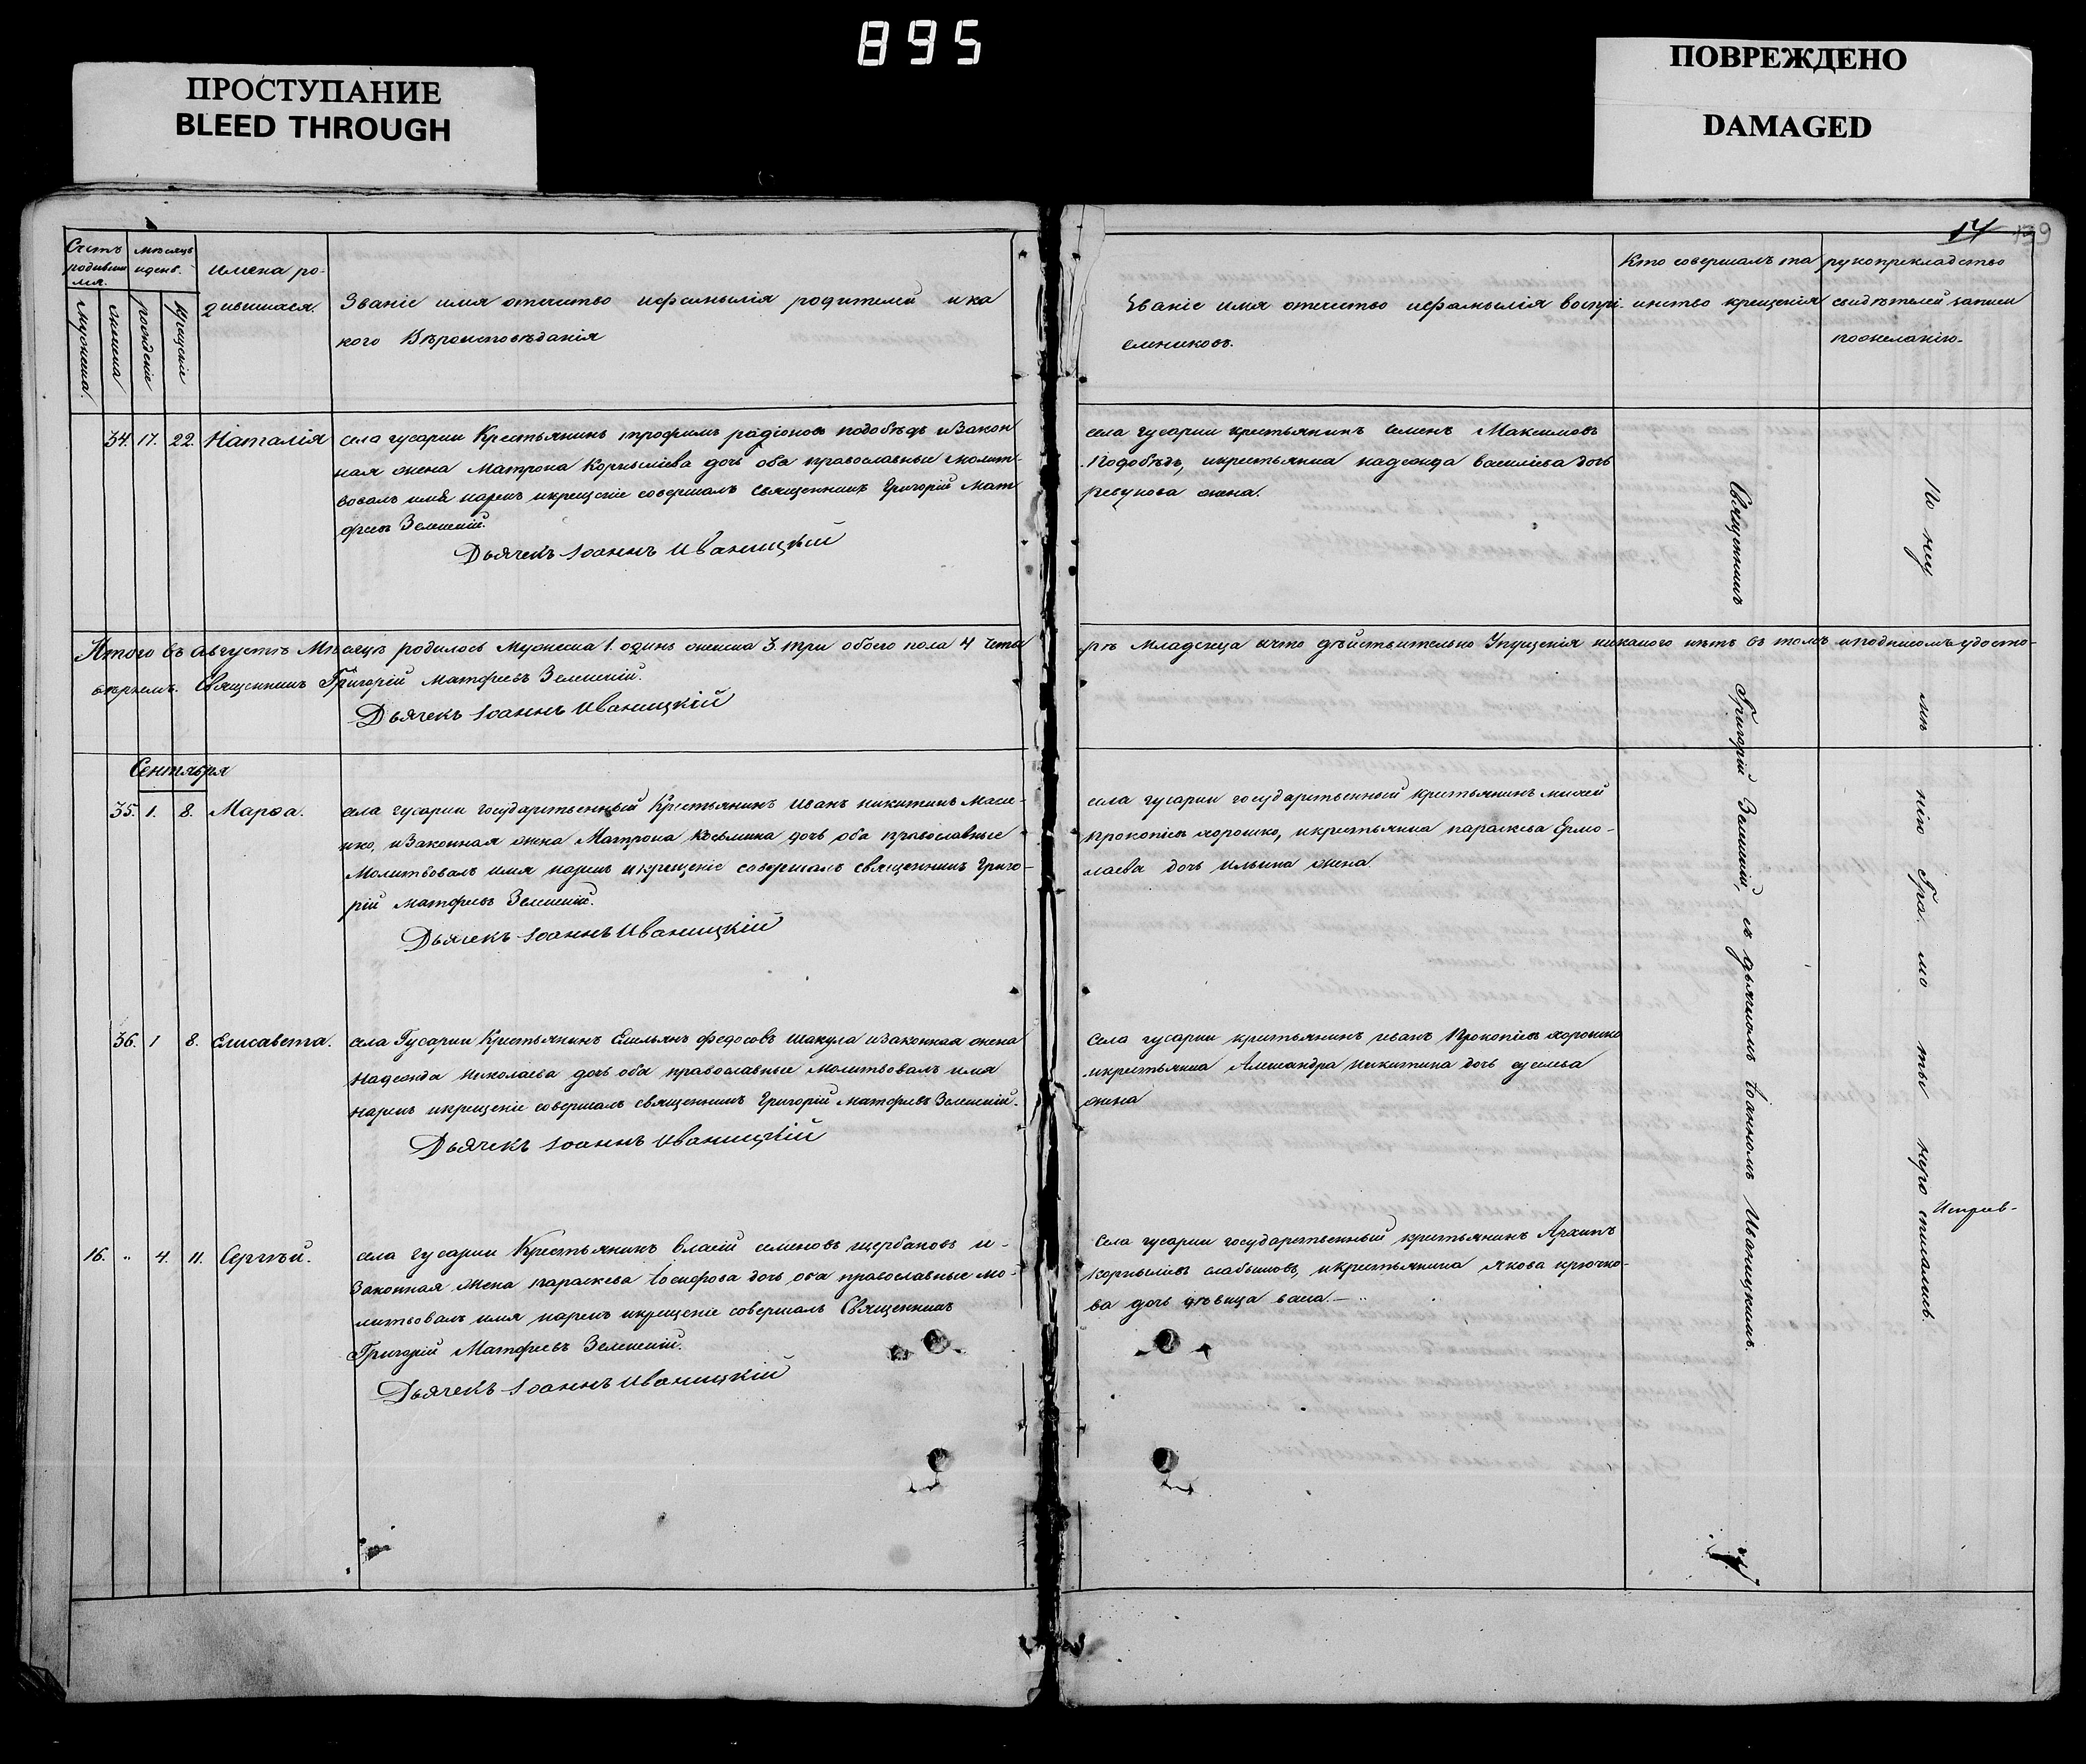 895
ПРОСТУПАНИЕ
BLEED THROUGH
ПОВРЕЖДЕНО
DAMAGED
14
139
Счетъ родившимя.
мѣсяцъ иденъ.
имена родившися.
Званіе имя отечество ифамылія родителей ика
кого Вѣроисповѣданія
мужеска.
женска
рожденіе
крещеніе
Званіе имя отечество ифамылія воспрі-
емниковъ.
Кто совершалъ та
инство крещенія
рукоприкладство
свидѣтелей записи
пожеланію.
34. 17. 22. Наталія
села гусарки Крестьянинъ трофимъ радіоновъ подобѣдъ иЗакон
ная жена Матрона Корныліева дочь оба православные молит-
вовалъ имя нарекъ икрещеніе совершалъ священникъ Григорій Мат
феевъ
Дьячекъ Іоаннъ Иваницкій
села гусарки крестьянинъ Семенъ Максимовъ
Подобѣдъ, икрестьянка надежда василіева дочь
ревунова жена.
Итого въ августѣ Мѣсяцѣ родилось Мужеска 1. одинъ женска 3. три обоего пола 4 четы
ре Младенца ичто дѣйствительно Упущенія никакого нѣтъ въ томъ иподписомъ удосто-
вѣряемъ. Священникъ Григорій Матфеевъ
Дьячекъ Іоаннъ Иваницкій
Сентября
35. 1. 8. Марѳа.
села гусарки государственный Крестьянинъ иванъ никитинъ
ико, иЗаконная жена Матрона Косьмина дочь оба православные
Молитвовалъ имя нарекъ икрещеніе совершалъ священникъ Григо-
рій Матфеевъ
Дьячекъ Іоаннъ Иваницкій
села гусарки государственный крестьянинъ
прокопіевъ хорошко, икрестьянка параскева Ермо-
лаева дочь ильина жена
36. 1 8. Елисавета.
села Гусарки Крестьянинъ Емельянъ федосовъ шакула иЗаконная жена
Надежда Николаева дочь оба православные Молитвовалъ имя
нарекъ икрещеніе совершалъ священникъ Григорій Матфеевъ
Дьячекъ Іоаннъ Иваницкій
Села гусарки крестьянинъ иванъ Прокопіевъ хорошко
икрестьянка Александра Никитина дочь
жена
16. „ 4. 11. Сергѣй.
села гусарки Крестьянинъ власій семеновъ щербаковъ и-
Законная жена параскева Іосифова дочь оба православные мо-
литвовалъ имя нарекъ икрещеніе совершалъ Священникъ
Григорій Матфеевъ
Дьячекъ Іоаннъ Иваницкій
Села гусарки государственный крестьянинъ Архипъ
Корныліевъ икрестьянина якова крючко-
ва дочь дѣвица
Священникъ Григорій съ дьячкомъ Іоанномъ Иваницкимъ.
По неу мѣ нію Гра мо ты